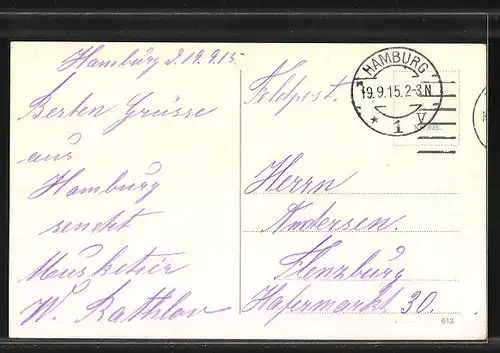 Hamburg d. 19.9.15.
Besten Grüsse
aus
Hamburg
sendet
Musketier
W. Rathlov
Feldpost.
HAMBURG
19.9.15.2-3N
* 1 V
Herrn
Andersen.
Flenzburg
Hafermarkt 30.
612